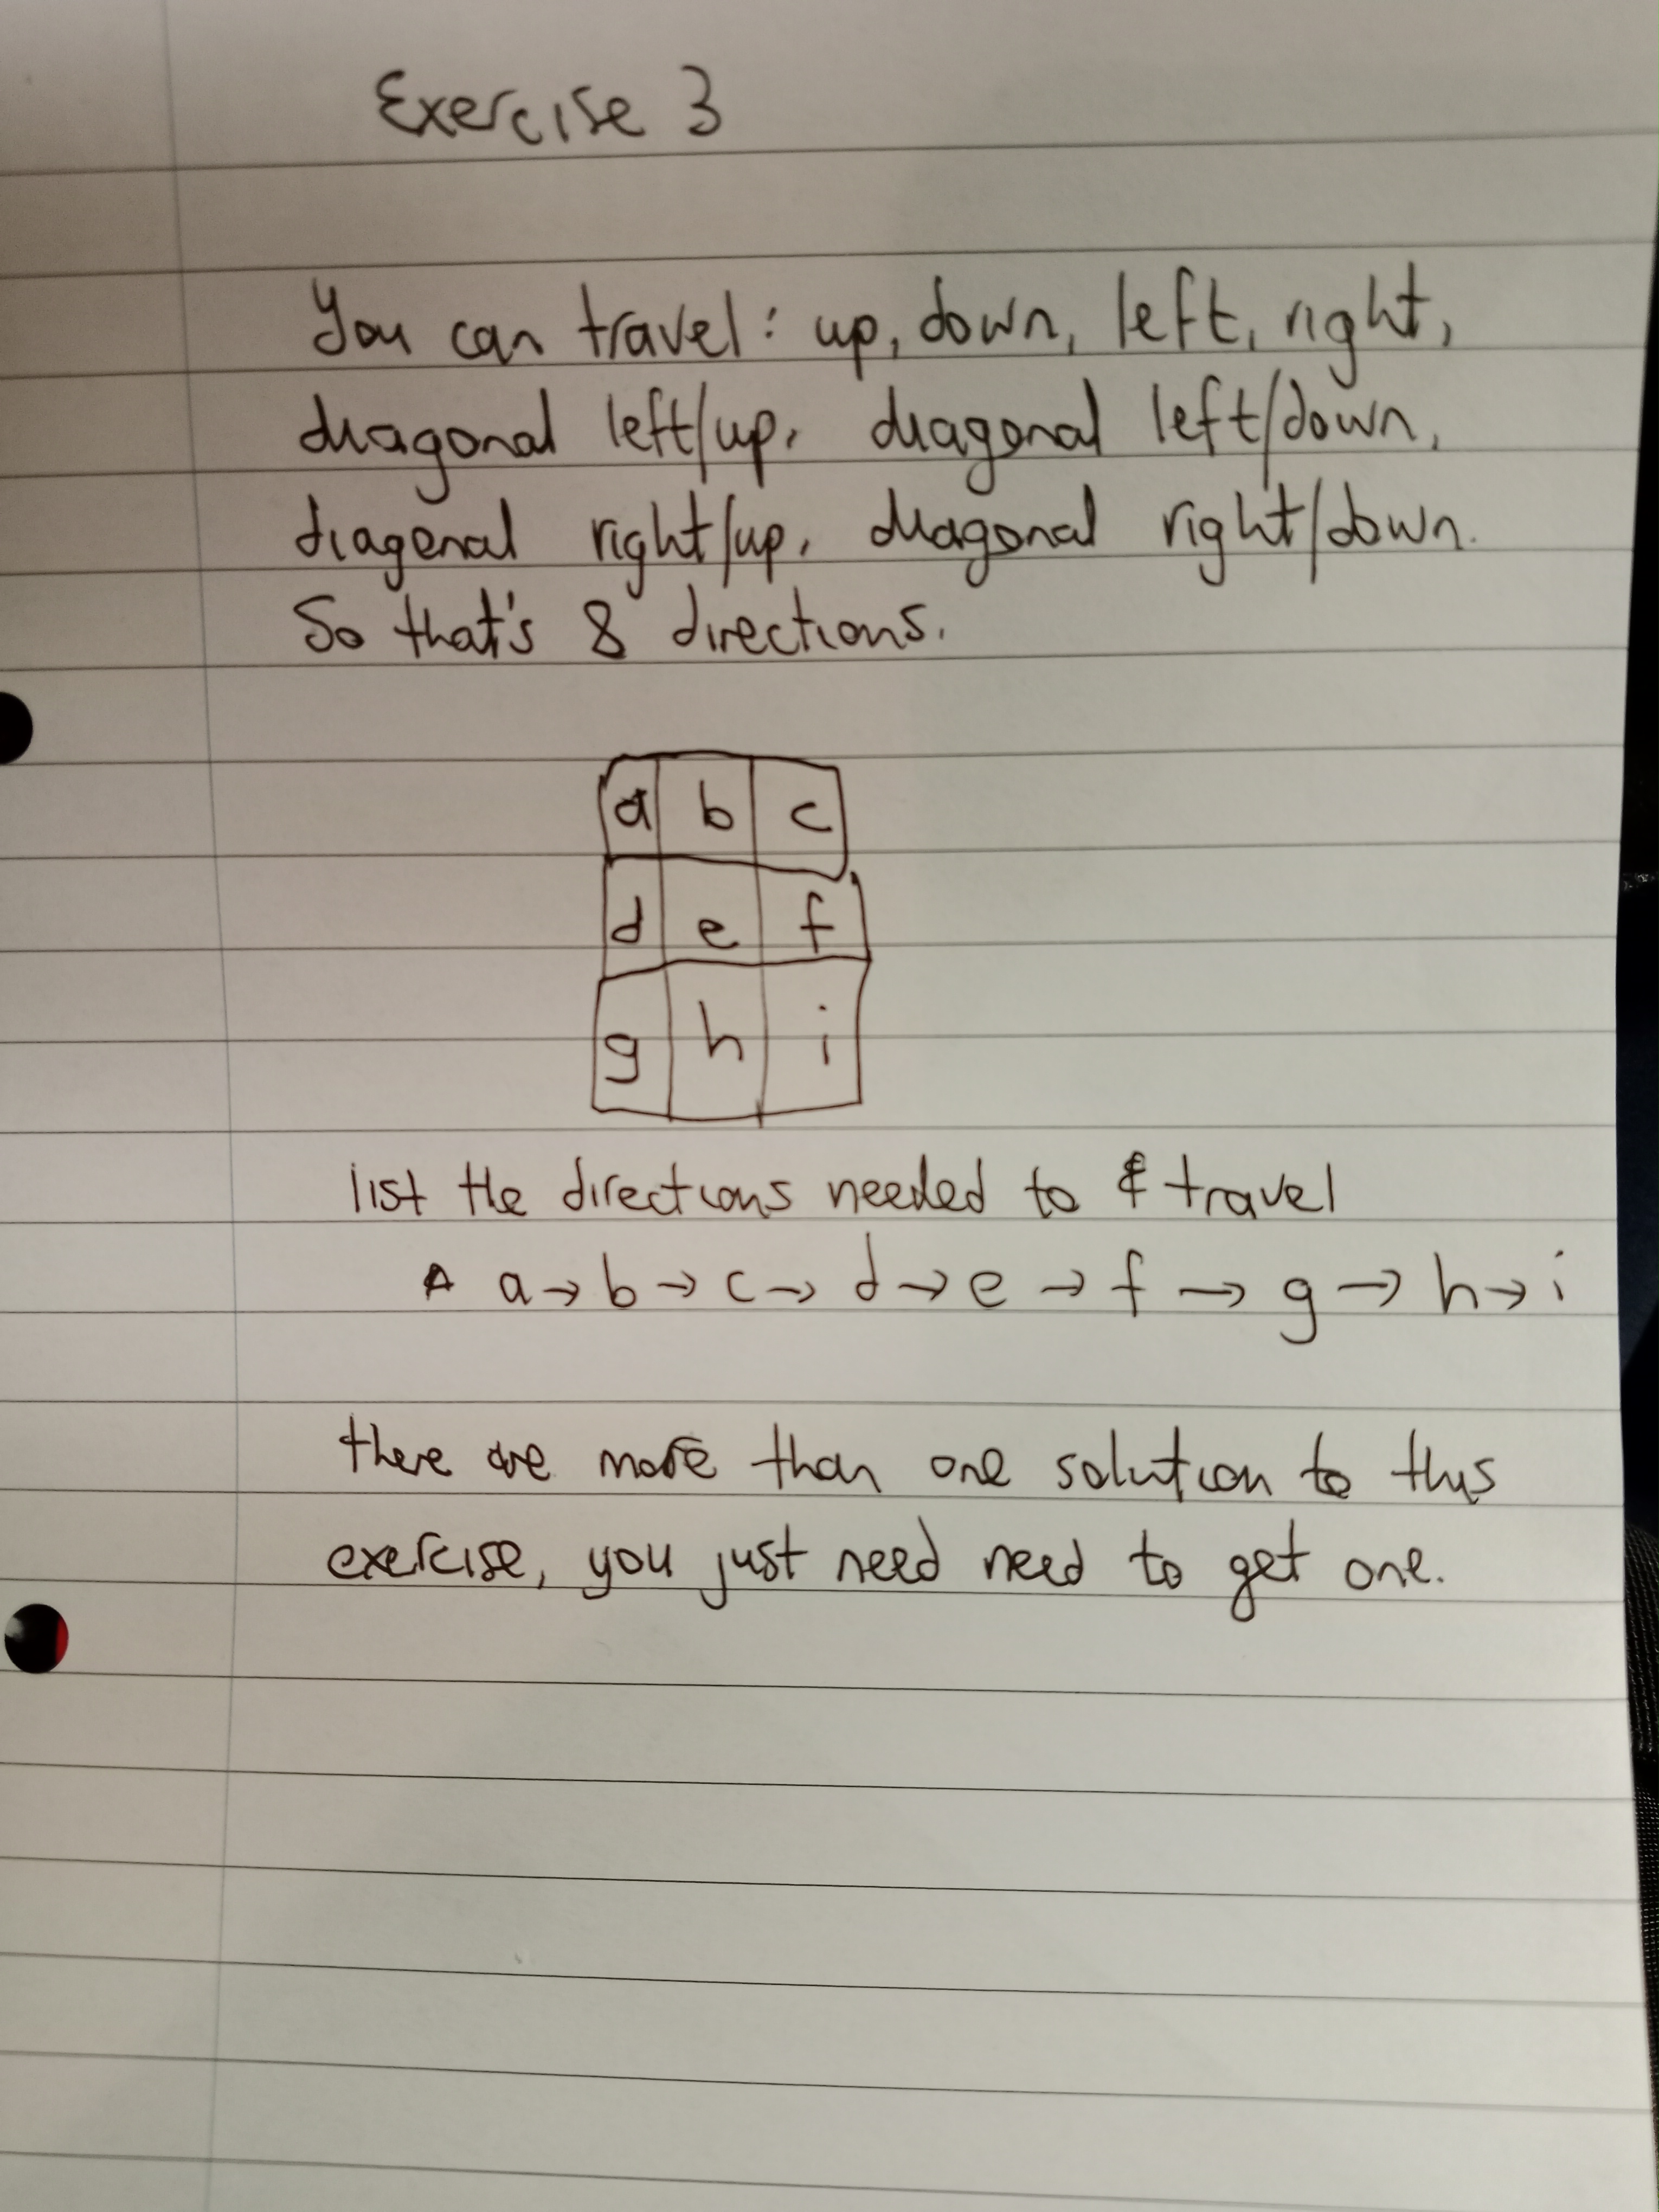 Exercise 3
You can travel: up, down, left, right,
diagonal left/up, diagonal left/down,
diagenal right/up, diagonal right/down.
So that's 8 directions.
a b c
d e f
g h i
list the directions needed to travel
a → b → c → d → e → f → g → h → i
there are more than one solution to this
exercise, you just need need to get one.